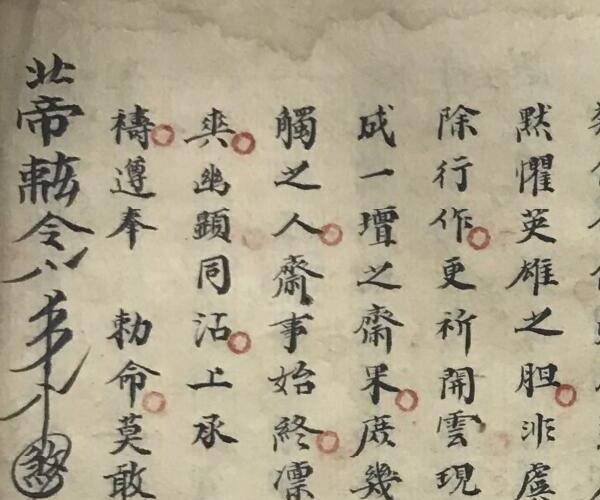 默懼英雄之胆非盧
除行作更祈開雲現
成一壇之齋果庶幾
觸之人齋事始終凛
爽幽顯同沾上承
禱遵奉 勅命莫敢
北帝
令
煞